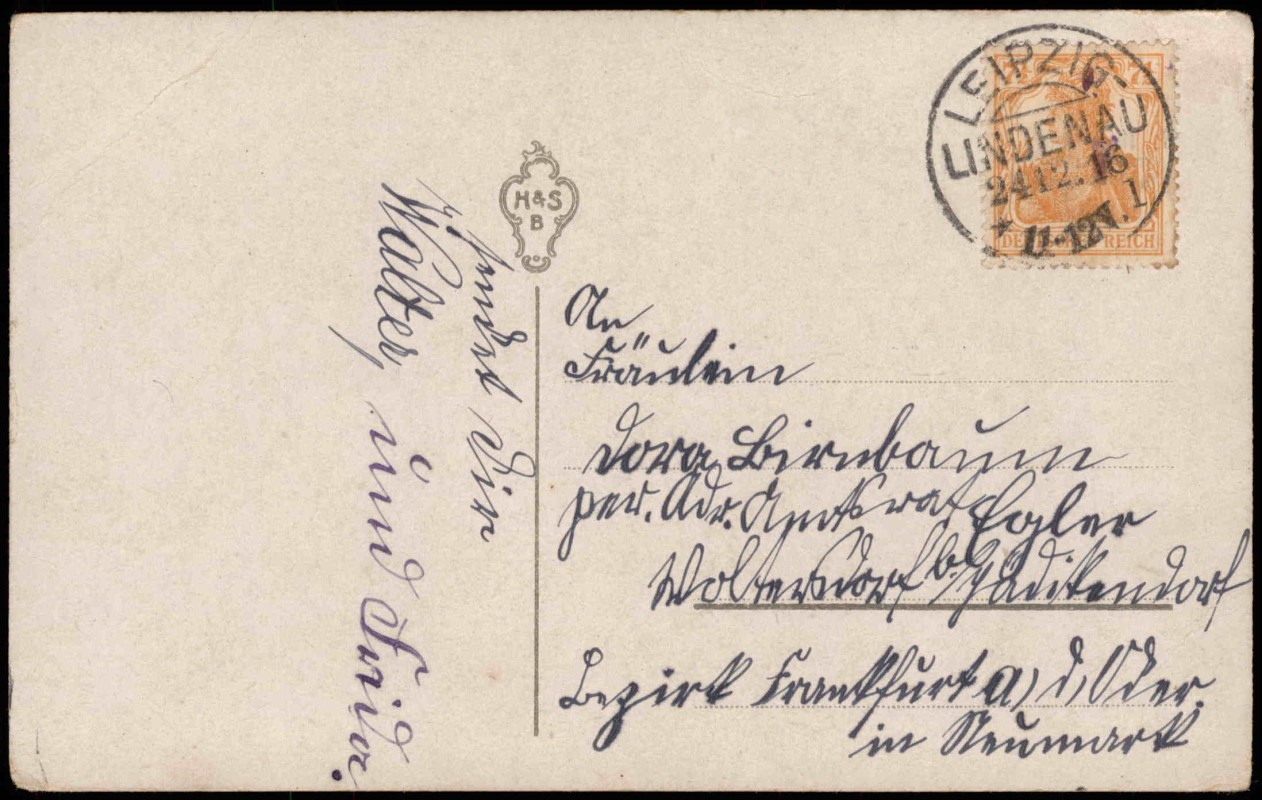 LEIPZIG-
LINDENAU
24.12.16
* 11-12V. 1
DEUTSCHES REICH
H&S
B
sendet Dir
Walter, und Frida.
An
Fräulein
Dora Birnbaum
per. Adr. Amtsrat Egler
Woltersdorf b/
Bezirk Frankfurt a, d, Oder.
in Neumark